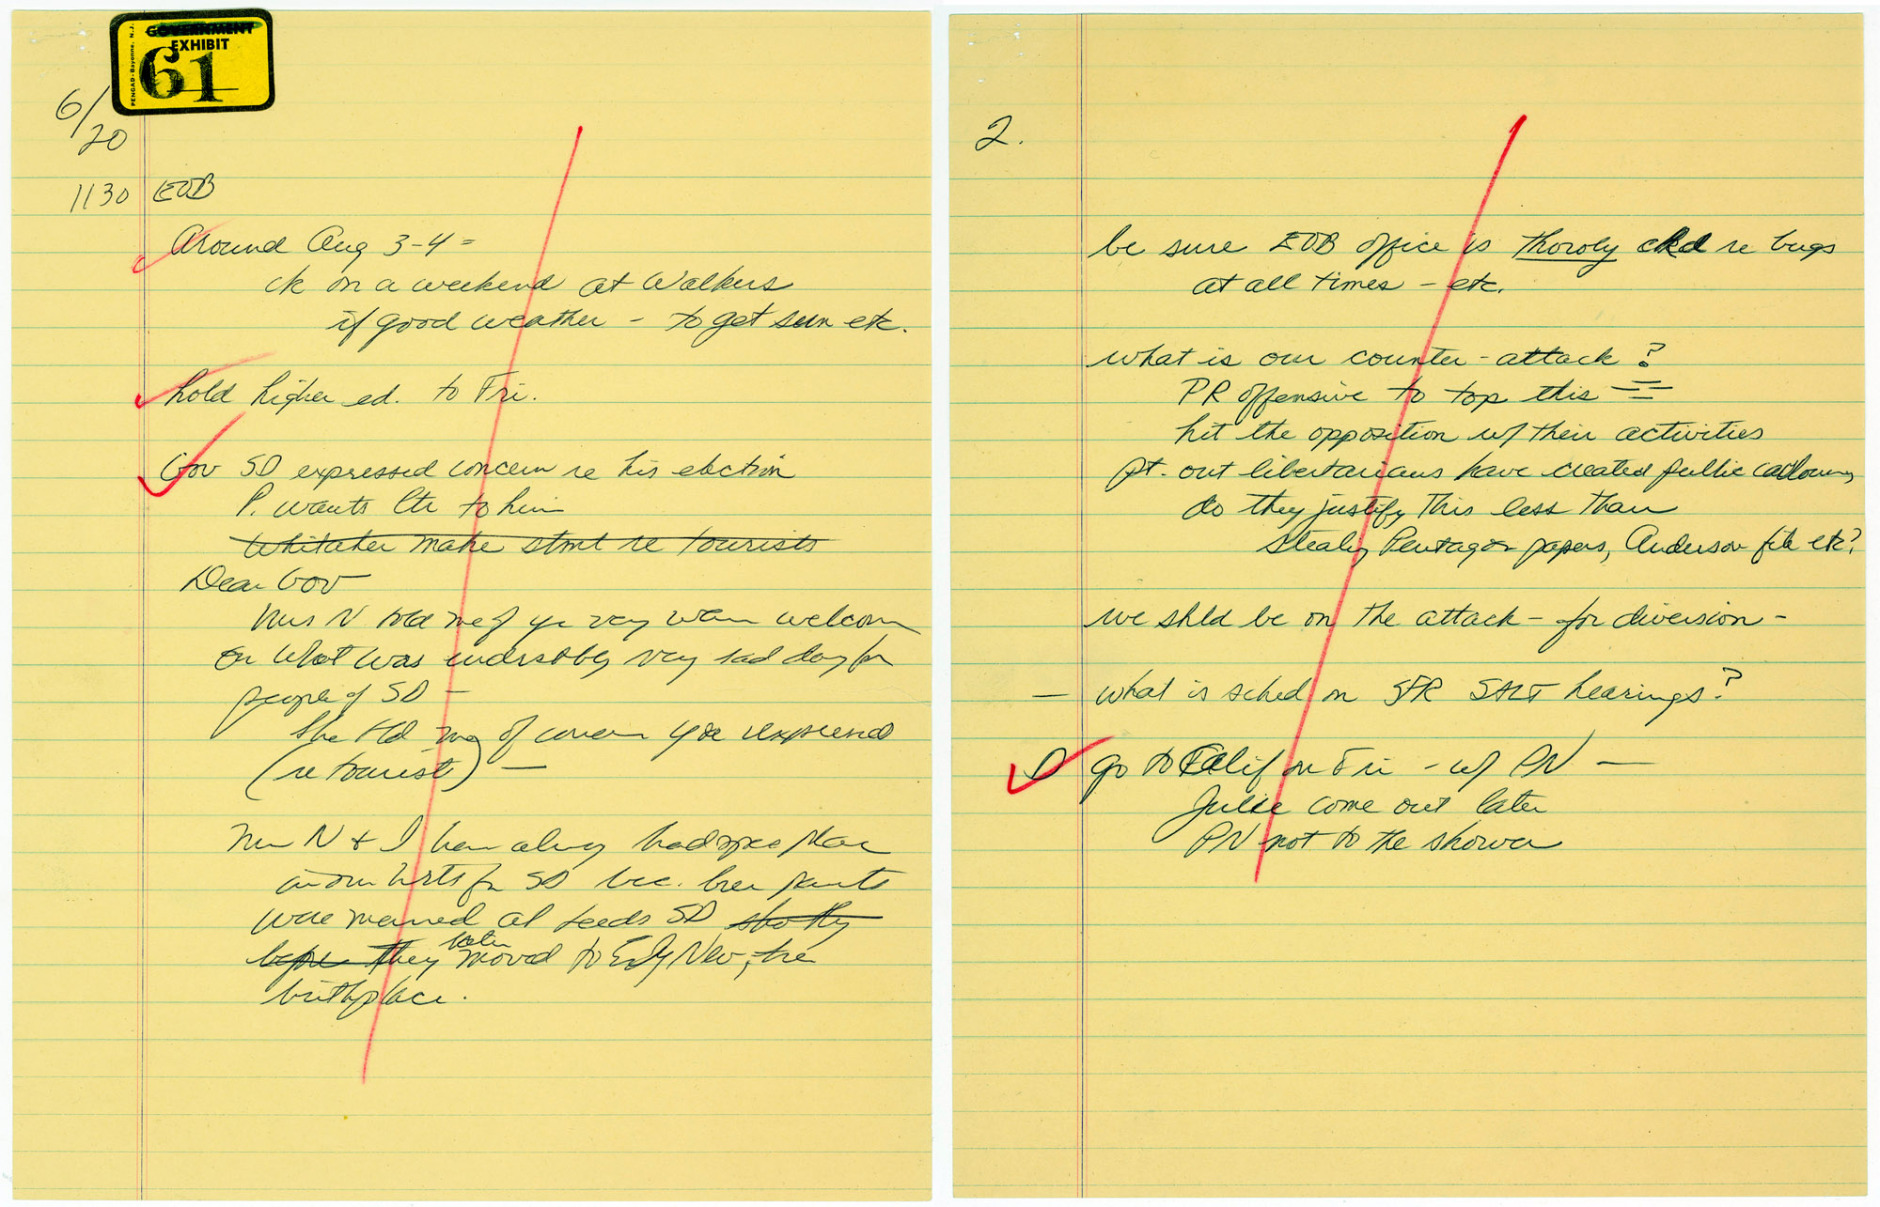 GOVERNMENT
EXHIBIT
61
PENGAD-Bayonne, N.J.
6/20
1130 EOB
Around Aug 3-4 =
ck on a weekend at Walkers
if good weather - to get sun etc.
hold higher ed. to Fri.
Gov SD expressed concern re his election
P. wants ltr to him
Whitaker make stmt re tourists
Dear Gov
Mrs N told me of yr very warm welcome
on what was very sad day for
people of SD -
She told me of concern you expressed
(re tourists) -
Mrs N & I have always had place
in our hrts for SD bec. her parents
were married at Leeds SD shortly
before they later moved to Ely Nev, her
birthplace.
2.
be sure EOB office is thoroly ckd re bugs
at all times - etc.
what is our counter-attack?
PR offensive to top this =
hit the opposition w/ their activities
pt. out libertarians have created public
do they justify this less than
stealing Pentagon papers, Anderson file etc?
we shld be on the attack - for diversion -
- what is sched on SFR SALT hearings?
go to Calif on Fri - w/ PN -
Julie come out later
PN not to the shower